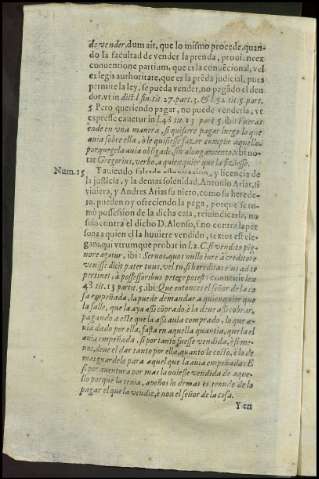 de vender, dum ait, que lo mismo procede, quan-
do la facultad de vender la prenda, proviene ex
conventione partium, que es la convencional, vel
ex legis authoritate, que es la prēda judicial, pues
permite la ley, se pueda vender, no pagādo el deu
dor, ut in dict. l. fin. tit. 27. part. 5. & l. 42. tit. 5. part.
5. Pero queriendo pagar, no puede venderla, ut
expresse cavetur in l. 43. tit. 13. part. 5. ibi:
ende en una manera, si quisiere pagar luego lo que
avia sobre ella,
porque gela avia obligado, ibi no-
tat Gregorius, verbo, a quien quier que la
Num. 15 y licencia de
la justicia, y la demas solenidad, Antonio Arias, si
viviera, y Andres Arias su nieto, como su herede-
ro, pueden oy ofreciendo la paga, porque se to-
mò possession de la dicha casa, reivindicarlo, no
solo contra el dicho D. Alonso, sino contra la per
sona a quien el la huviere vendido, textus est ele-
gans, qui utrumque probat in l. 2. C. si vendito pig-
nore agatur, ibi:
venisse dicis pater tuus, vel tu, si hereditatem
pertinet, à possessoribus petere potest:
43. tit. 13. partit. 5. ibi: Que entonces el señor de la co
sa empeñada, la puede demandar a quien quier que
la falle, que la aya assi comprado è la deve assi cobrar,
pagando a elle que la assi avia comprado, lo que a-
via dado por ella, fasta en aquella quantia, que la el
avia empeñada, è por tanto fuesse vendida, è si me-
nos, deve el dar tanto por ella, quanto le costo, è lo de
mas guardelo para aquel que la avia empeñada: E
si por aventura por mas la oviesse vendida de aque-
llo porque la tenia, a este lo demas es tenudo de lo
pagar el que la vendiò, è non el señor de la cosa.
Y en